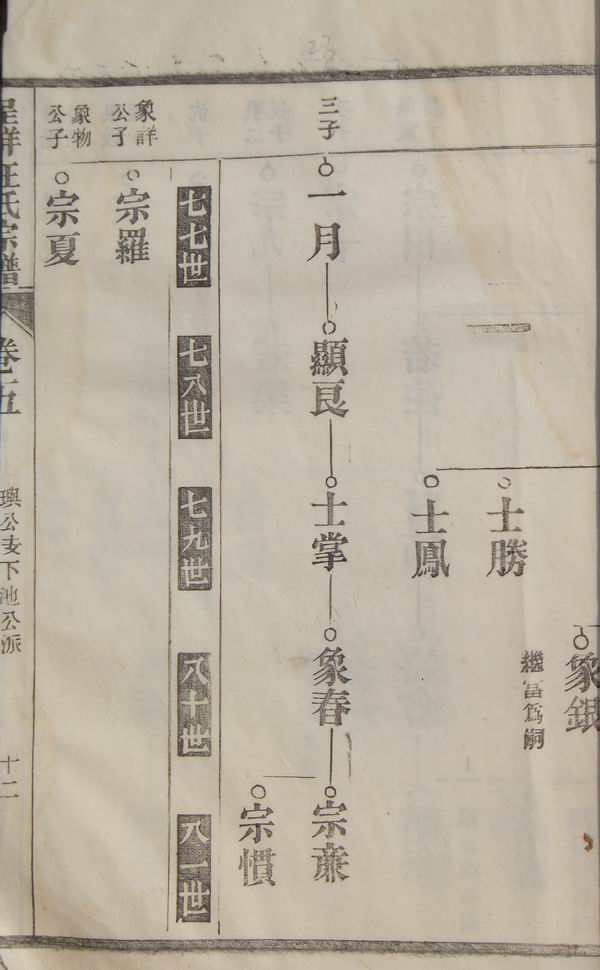 象銀
繼富爲嗣
士勝
士鳳
三子
一月
顯良
士掌
象春
宗廉
宗慣
七七世
七八世
七九世
八十世
八一世
象詳公子
宗羅
象物公子
宗夏
汪氏宗譜
卷五
公支下池公派
十二